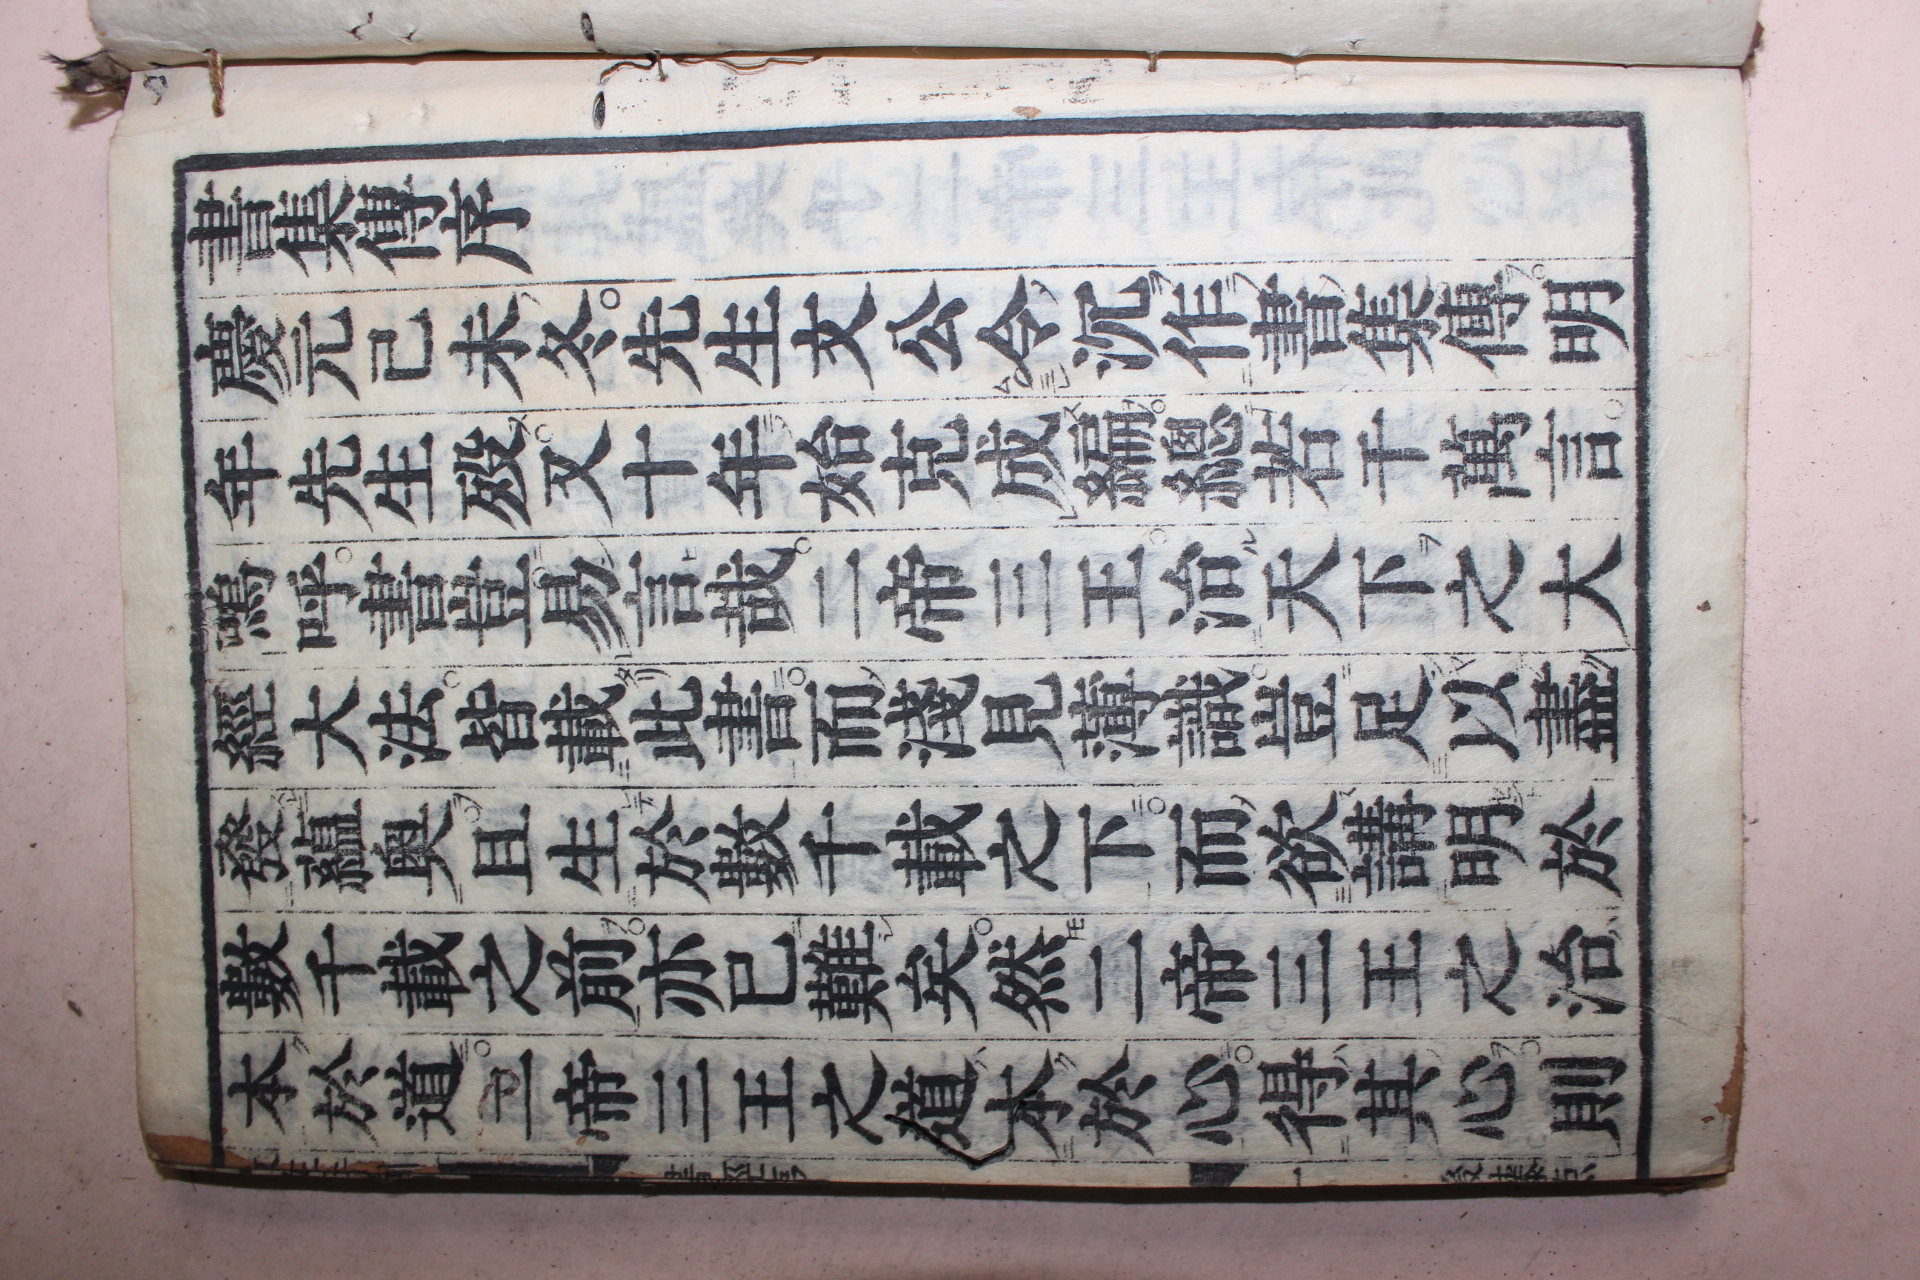 書集傳序
慶元己未冬先生文公令沉作書集傳明
年先生殁又十年始克成編總若干萬言
嗚呼書豈易言哉二帝三王治天下之大
經大法皆載此書而淺見薄識豈足以盡
發蘊奥且生於數千載之下而欲講明於
數千載之前亦已難矣然二帝三王之治
本於道二帝三王之道本於心得其心則